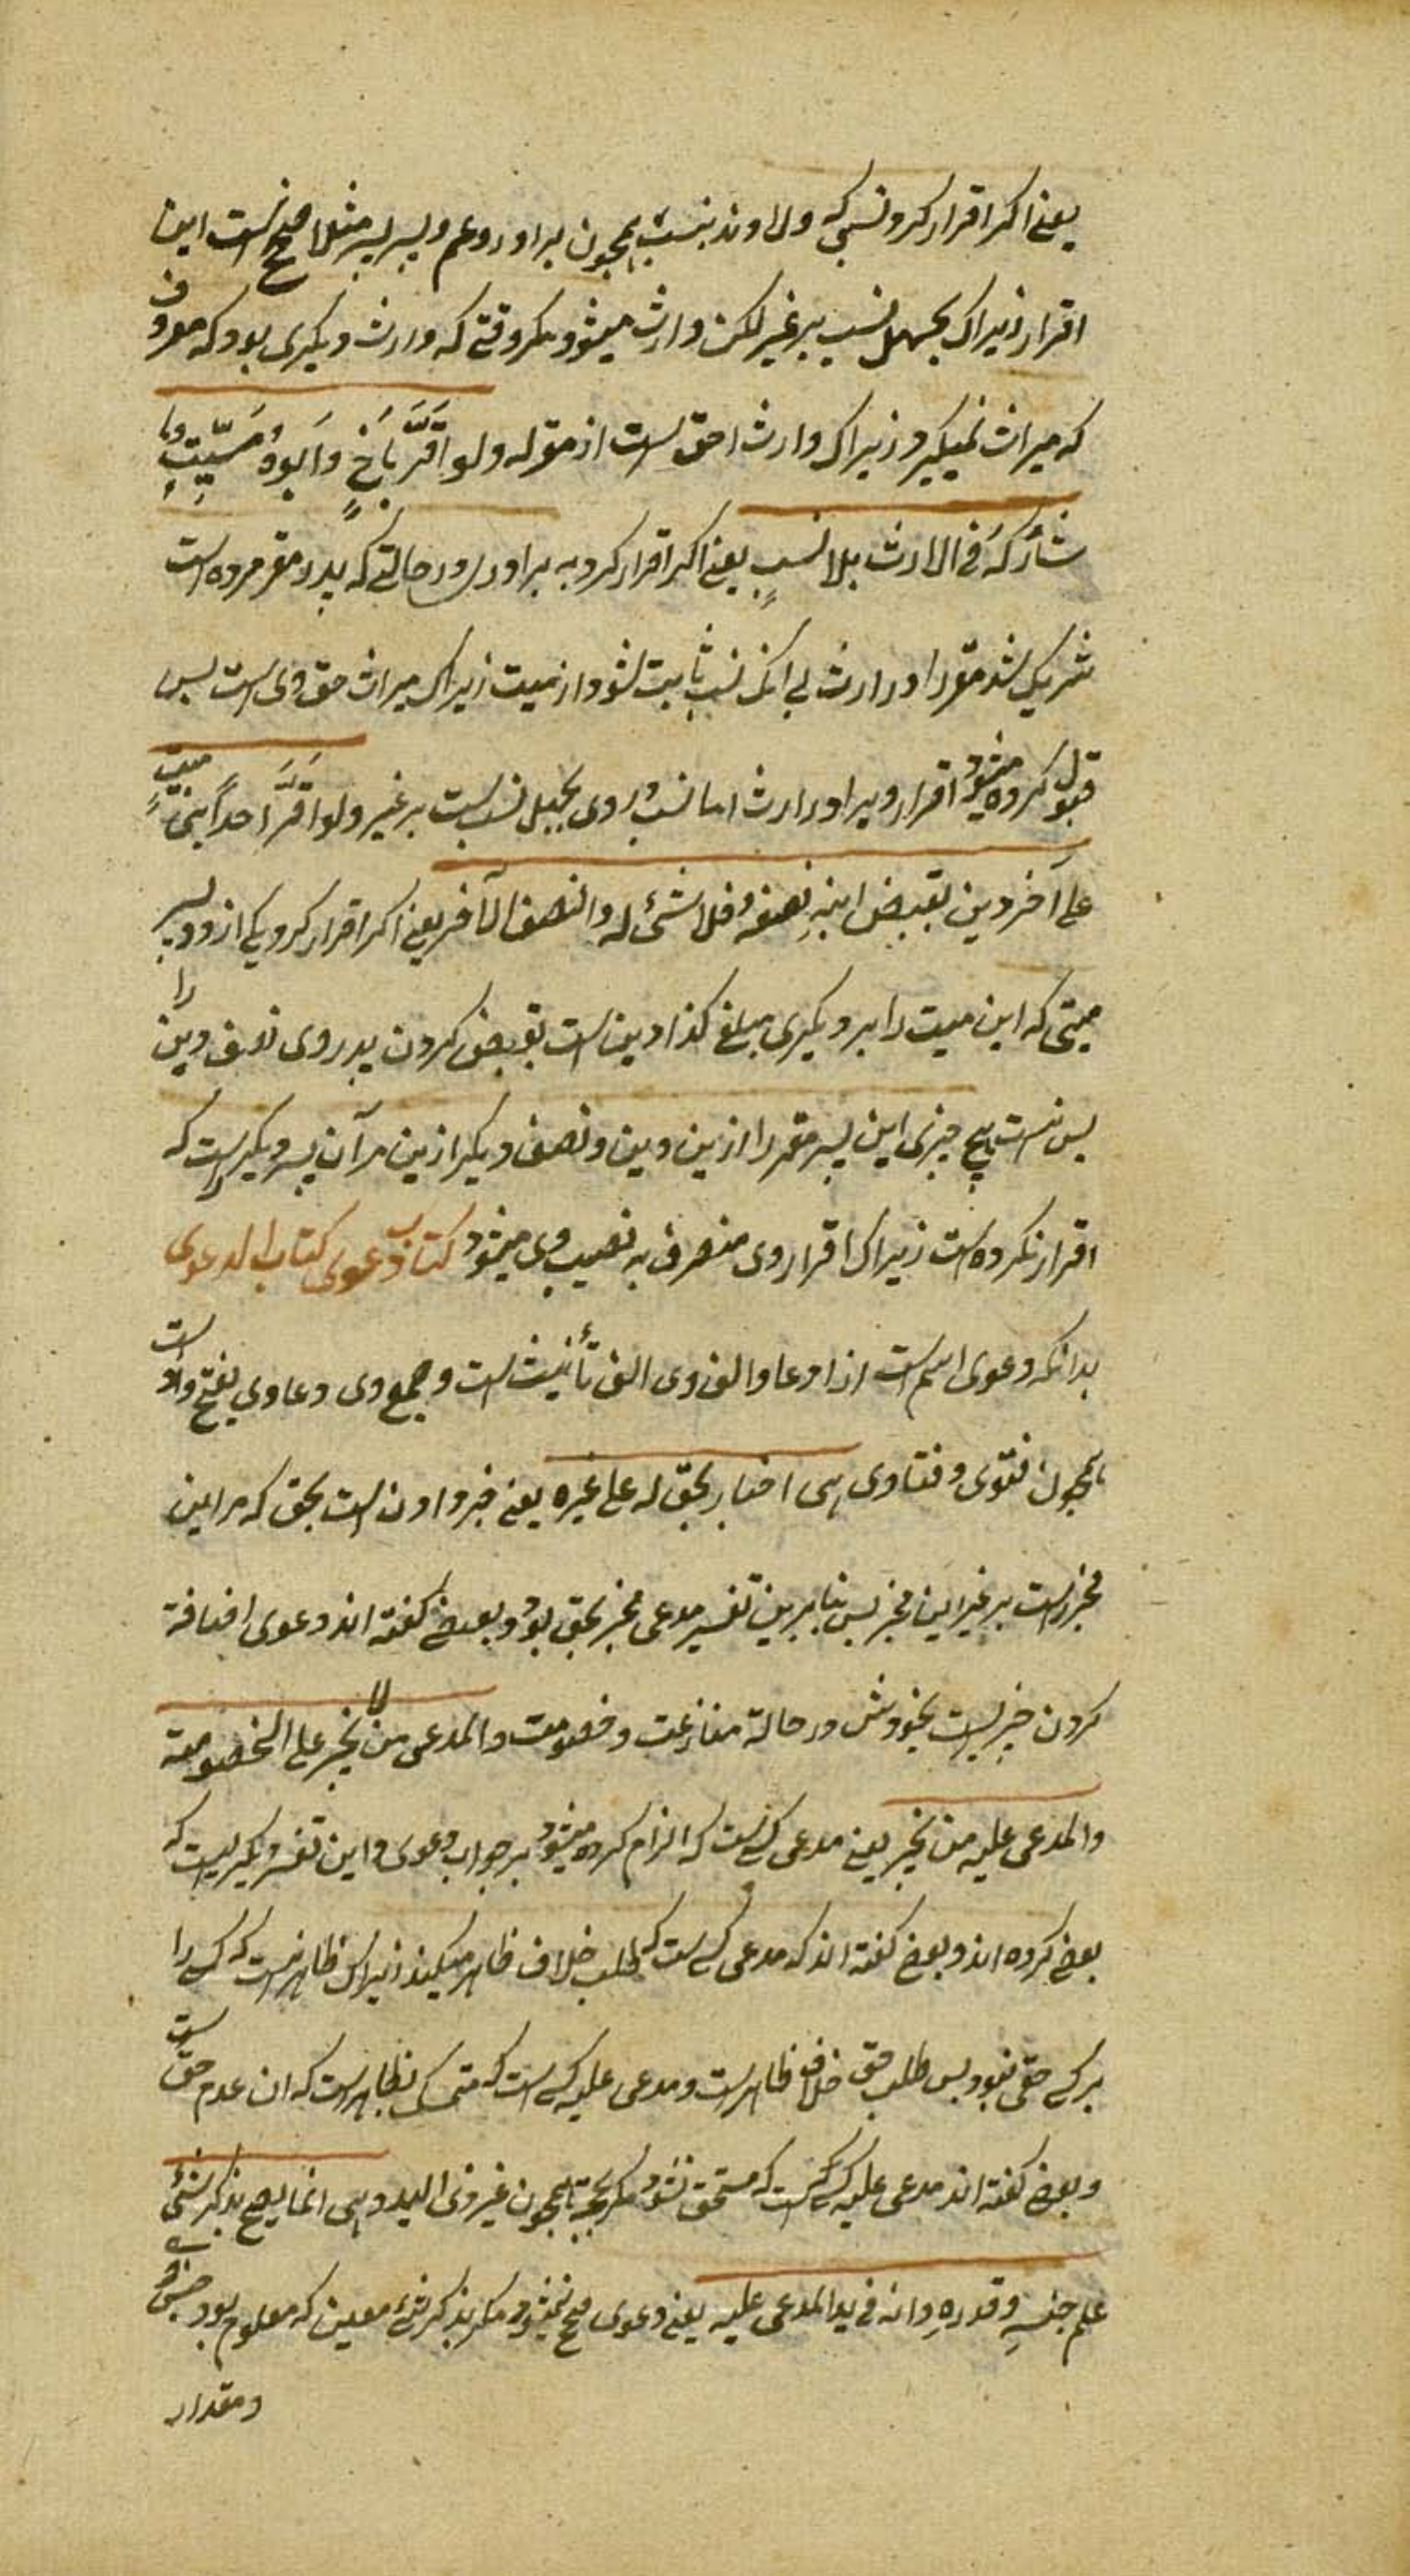 یعنی اکر اقرار کرد نسبی که ولاوند بنسب همچون برادر و عم و پسر پسر مثلا صحیح نیست این
اقرار زیراک بحمل نسب بر غیر لکن وارث میشود مکر وقتی که وارث دیکری بود که معروف
که میراث نمیکیرد زیراک وارث احق است از مقر له ولو اَقَرَّ بِاَخٍ وَاَبوهُ مَیِّتٍ
شارکه فی الارث بلا نسبٍ یعنی اکر اقرار کرد به برادری در حالتی که پدر مقر مرده است
شریک شد مقر را در ارث بی انکه نسب ثابت شود از میت زیراک میراث حق وی است پس
قبول کرده میشود اقرار ویرا در ارث اما نسب در وی تحمیل نسب است بر غیر ولو اَقَرَّ احد ابنی میتٍ
علی آخر دین بقبض ابیهِ نصفه فلا شیٔ له والنصف للآخر یعنی اکر اقرار کرد یکی از دو پسر
میتی که این میت را بر دیکری مبلغ کذا دین است بقبض کردن پدر وی نصف دین را
پس نیست هیچ چیزی این پسر مقر را ازین دین و نصف دیکر ازین مر آن پسر دیکر راست که
اقرار نکرده است زیراک اقرار وی منصرف به نصیب وی میشود کتاب دعوی کتاب الدعوی
بدانکه دعوی اسم است از ادعا و الف وی الف تأنیث است و جمع وی دعاوی بفتح واو است
همچون فتوی و فتاوی هی اخبار بحق له علی غیره یعنی خبر دادن است بحق که مر این
مخبر راست بر غیر این مخبر پس بنا برین تفسیر مدعی مخبر بحق بود و بعضی کفته اند دعوی اضافة
کردن چیزیست بخودش در حالة منازعت و خصومت والمدعی من لا یجبر علی الخصومة
والمدعی علیه من یجبر یعنی مدعی کسیست که الزام کرده میشود بر جواب دعوی و این تفسیر دیکریست که
بعضی کرده اند و بعضی کفته اند که مدعی کسی است که طلب خلاف ظاهر میکند زیراک ظاهر نیست که کسی را
بر کسی حقی نبود پس طلب حق خلاف ظاهر است و مدعی علیه کسی است که متمسک بظاهر است که ان عدم حق است
و بعضی کفته اند مدعی علیه کسی است که مستحق نشود مکر بحجة همچون غیر ذی الید وهی انما یصح بذکر شئ
علم جنسه وقدرهِ وانه فی ید المدعی علیه یعنی دعوی صحیح نمیشود مکر بذکر شئ معین که معلوم بود جنس
ومقدار